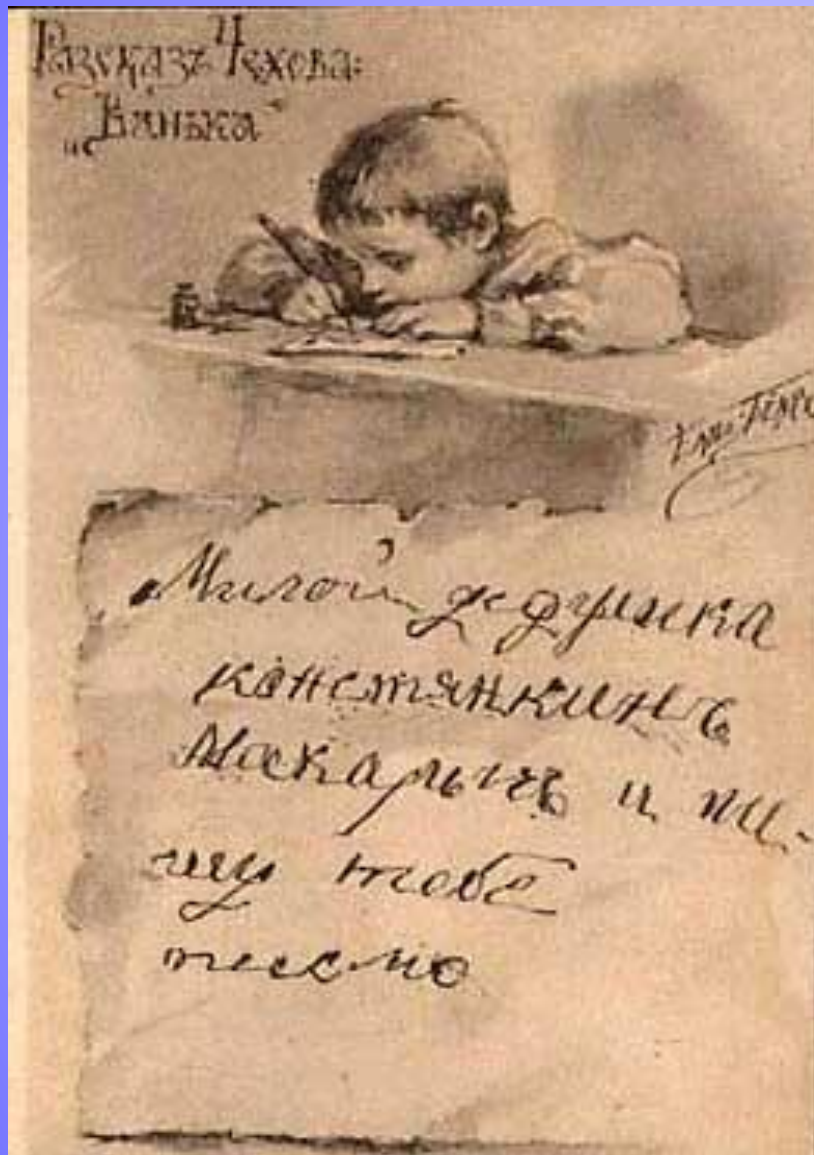 Разсказъ Чехова:
„Ванька“
Милой дедушка
констянкинъ
Макарычъ и пи-
шу тебе
письмо